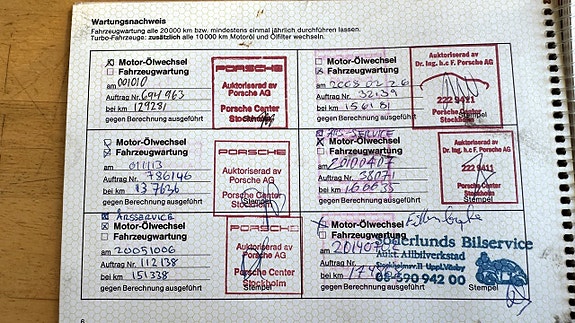 Wartungsnachweis
Fahrzeugwartung alle 20 000 km bzw. mindestens einmal jährlich durchführen lassen.
Turbo-Fahrzeuge: zusätzlich alle 10 000 km Motoröl und Ölfilter wechseln.
Motor-Ölwechsel
Fahrzeugwartung
am 001010
Auftrag Nr. 694963
bei km 129281
gegen Berechnung ausgeführt
Stempel
PORSCHE
Auktoriserad av
Porsche AG
Porsche Center
Stockholm
Motor-Ölwechsel
Fahrzeugwartung
am
Auftrag Nr. 32139
bei km 156181
gegen Berechnung ausgeführt
Stempel
Auktoriserad av
Dr. Ing. h.c F. Porsche AG
222 9411
Porsche Center
Stockholm
Motor-Ölwechsel
Fahrzeugwartung
am 011113
Auftrag Nr. 786146
bei km 137636
gegen Berechnung ausgeführt
Stempel
PORSCHE
Auktoriserad av
Porsche AG
Porsche Center
Stockholm
ÅRS-SERVICE
Motor-Ölwechsel
Fahrzeugwartung
am 20100407
Auftrag Nr. 38071
bei km 160035
gegen Berechnung ausgeführt
Stempel
Auktoriserad av
Dr. Ing. h.c F. Porsche AG
222 9411
Porsche Center
Stockholm
ÅRSSERVICE
Motor-Ölwechsel
Fahrzeugwartung
am 20051006
Auftrag Nr. 112138
bei km 151338
gegen Berechnung ausgeführt
PORSCHE
Auktoriserad av
Porsche AG
Porsche Center
Stockholm
Motor-Ölwechsel
Fahrzeugwartung
am
Auftrag Nr.
bei km
gegen Berechnung ausgeführt
Stempel
Söderlunds Bilservice
Aukt. Allbilverkstad
Uppl.Väsby
08-590 942 00
6